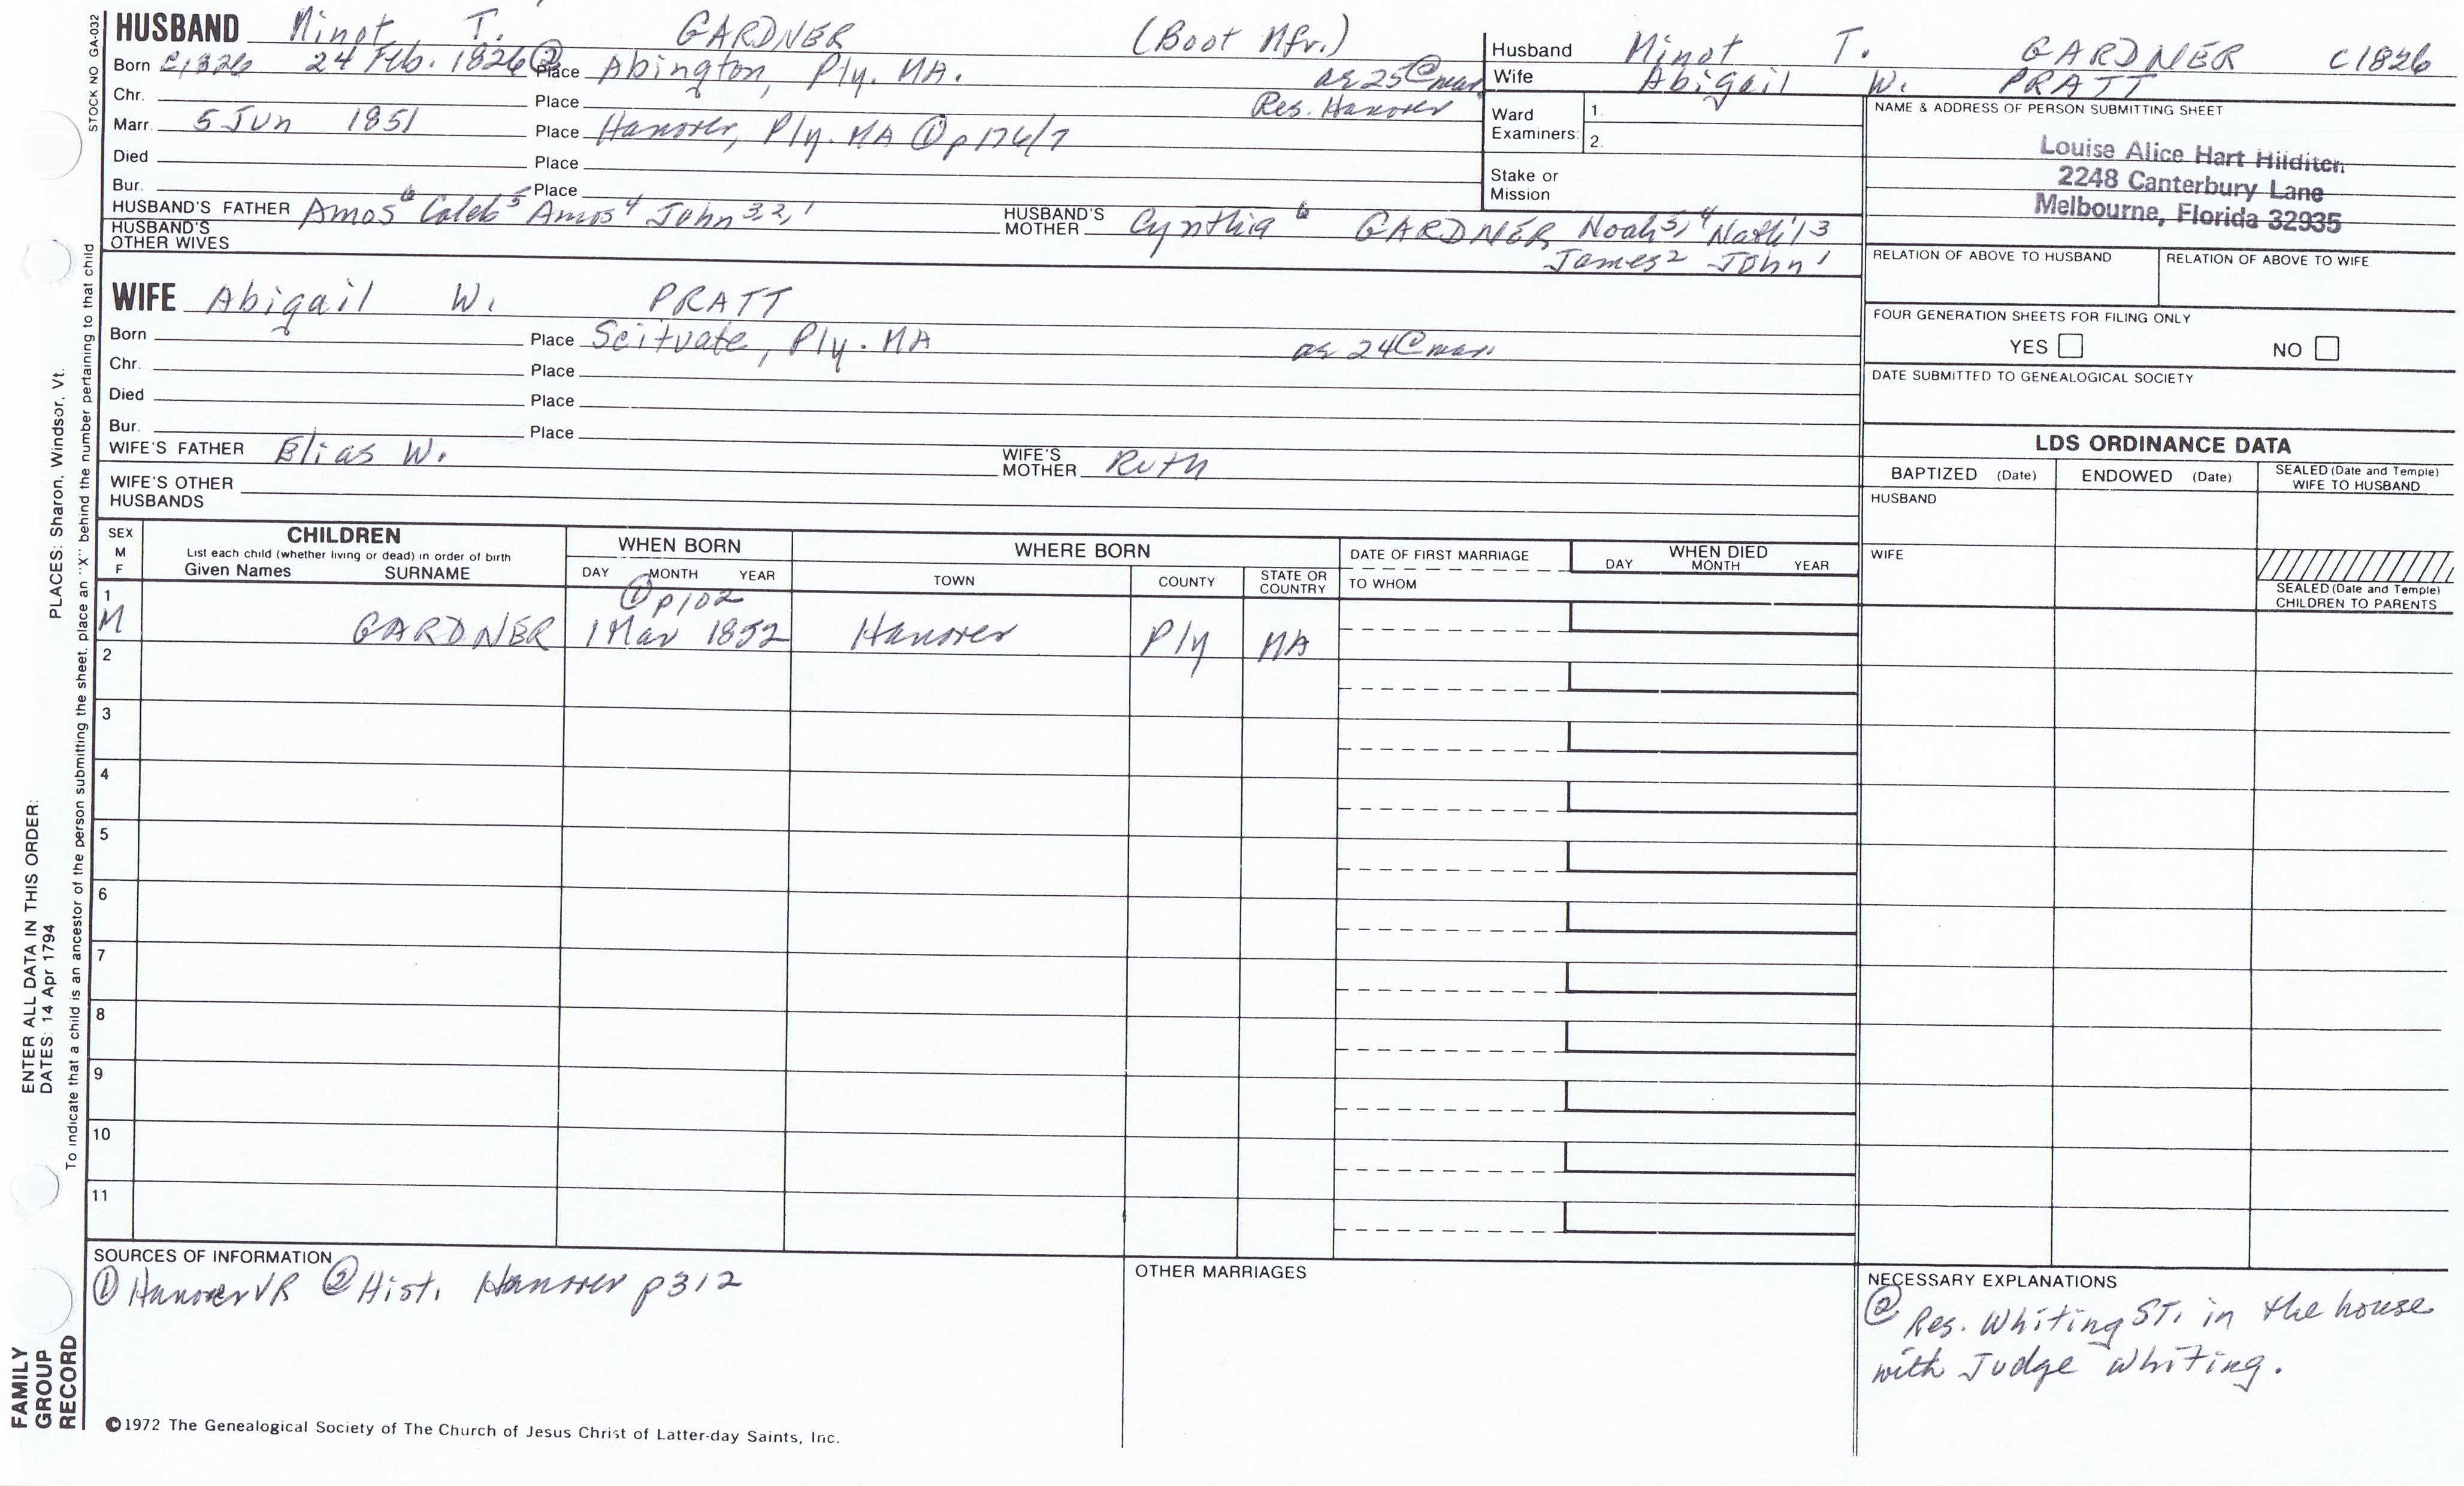 STOCK NO GA-032
HUSBAND Minot T. GARDNER (Boot Mfr.)
Born c1826 24 Feb. 1826 ② Place Abington, Ply. MA. ae 25 @ mar
Chr. Place Res. Hanover
Marr. 5 Jun 1851 Place Hanover, Ply. MA ① p176/7
Died Place
Bur. Place
HUSBAND'S FATHER Amos⁶ Caleb⁵ Amos⁴ John³,²,¹ HUSBAND'S MOTHER Cynthia⁶ GARDNER Noah⁵,⁴ Nath'l³
James² John¹
HUSBAND'S OTHER WIVES
WIFE Abigail W. PRATT
Born Place Scituate, Ply. MA ae 24 @ mar
Chr. Place
Died Place
Bur. Place
WIFE'S FATHER Elias W. WIFE'S MOTHER Ruth
WIFE'S OTHER HUSBANDS
Husband Minot T. GARDNER c1826
Wife Abigail W. PRATT
Ward Examiners: 1.
2.
Stake or Mission
NAME & ADDRESS OF PERSON SUBMITTING SHEET
Louise Alice Hart Hilditch
2248 Canterbury Lane
Melbourne, Florida 32935
RELATION OF ABOVE TO HUSBAND RELATION OF ABOVE TO WIFE
FOUR GENERATION SHEETS FOR FILING ONLY
YES NO
DATE SUBMITTED TO GENEALOGICAL SOCIETY
LDS ORDINANCE DATA
BAPTIZED (Date) ENDOWED (Date) SEALED (Date and Temple) WIFE TO HUSBAND
HUSBAND
WIFE
SEALED (Date and Temple) CHILDREN TO PARENTS
SEX M F
CHILDREN
List each child (whether living or dead) in order of birth
Given Names SURNAME
WHEN BORN
DAY MONTH YEAR
WHERE BORN
TOWN COUNTY STATE OR COUNTRY
DATE OF FIRST MARRIAGE
TO WHOM
WHEN DIED
DAY MONTH YEAR
① p102
1 M GARDNER 1 Mar 1852 Hanover Ply MA
2
3
4
5
6
7
8
9
10
11
SOURCES OF INFORMATION
① Hanover VR ② Hist. Hanover p312
OTHER MARRIAGES
NECESSARY EXPLANATIONS
② Res. Whiting ST. in the house
with Judge Whiting.
©1972 The Genealogical Society of The Church of Jesus Christ of Latter-day Saints, Inc.
ENTER ALL DATA IN THIS ORDER:
DATES: 14 Apr 1794
PLACES: Sharon, Windsor, Vt.
To indicate that a child is an ancestor of the person submitting the sheet, place an "X" behind the number pertaining to that child
FAMILY
GROUP
RECORD